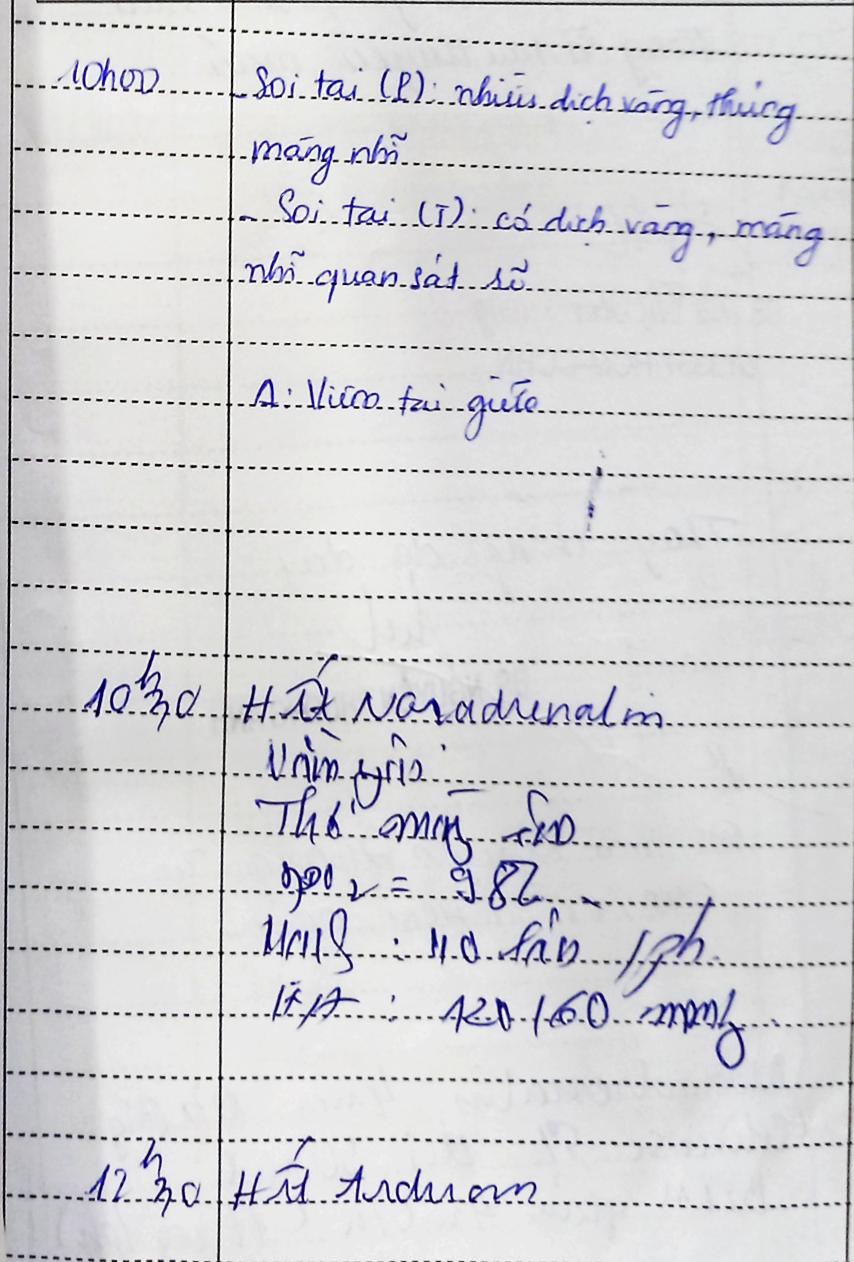 10h00 - Soi tai (P): nhiều dịch vàng, thủng
màng nhĩ
- Soi tai (T): có dịch vàng, màng
nhĩ quan sát rõ
A: Viêm tai giữa
10h30 Hết Noradrenalin
Thở máy
SpO2 = 98%
Mạch : 110 lần /ph
HA : 120/60 mmHg
12h30 Hết